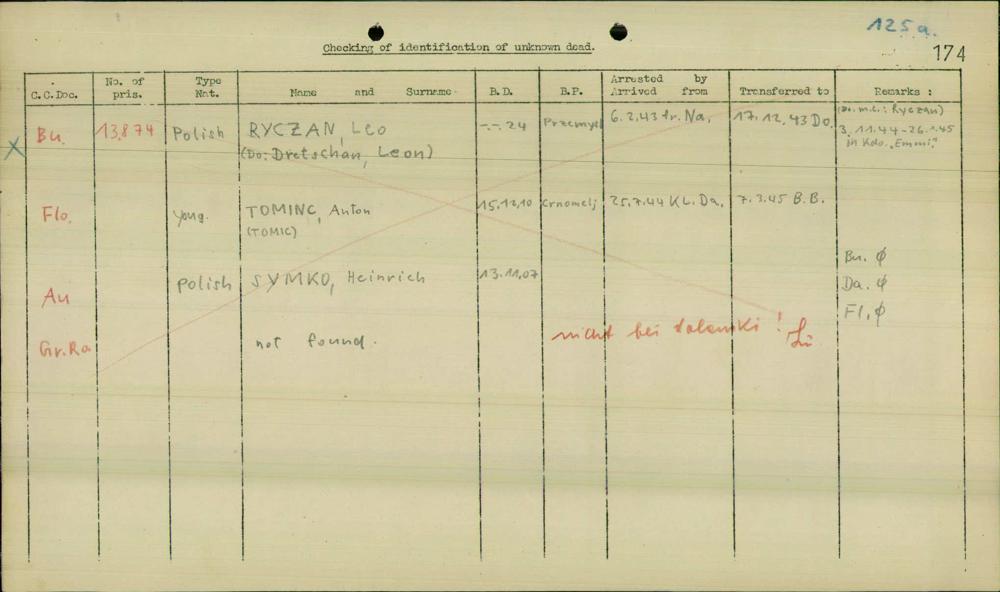 125a.
174
Checking of identification of unknown dead.
C.C.Doc. No. of pris. Type Nat. Name and Surname B.D. B.P. Arrested by Arrived from Transferred to Remarks :
Bu. 13874 Polish RYCZAN, Leo -.-.24 Przemysl 6.2.43 fr. Na, 17.12.43 Do. (Do. m.c.: Ryczan)
(Do: Dretschan, Leon) 3.11.44-26.1.45
in Kdo. "Emmi".
Flo. Yong. TOMINC, Anton 15.12.10 Crnomelj 25.7.44 KL. Da. 7.3.45 B.B.
(TOMIC)
Au Polish SYMKO, Heinrich 13.11.07 Bu. ϕ
Da. ϕ
Fl. ϕ
Gr.Ro not found. nicht bei !